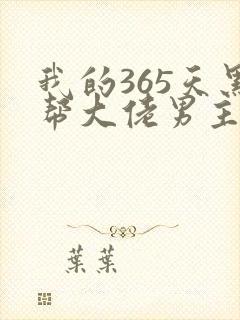 我的365天黑
帮大佬男主
葉葉